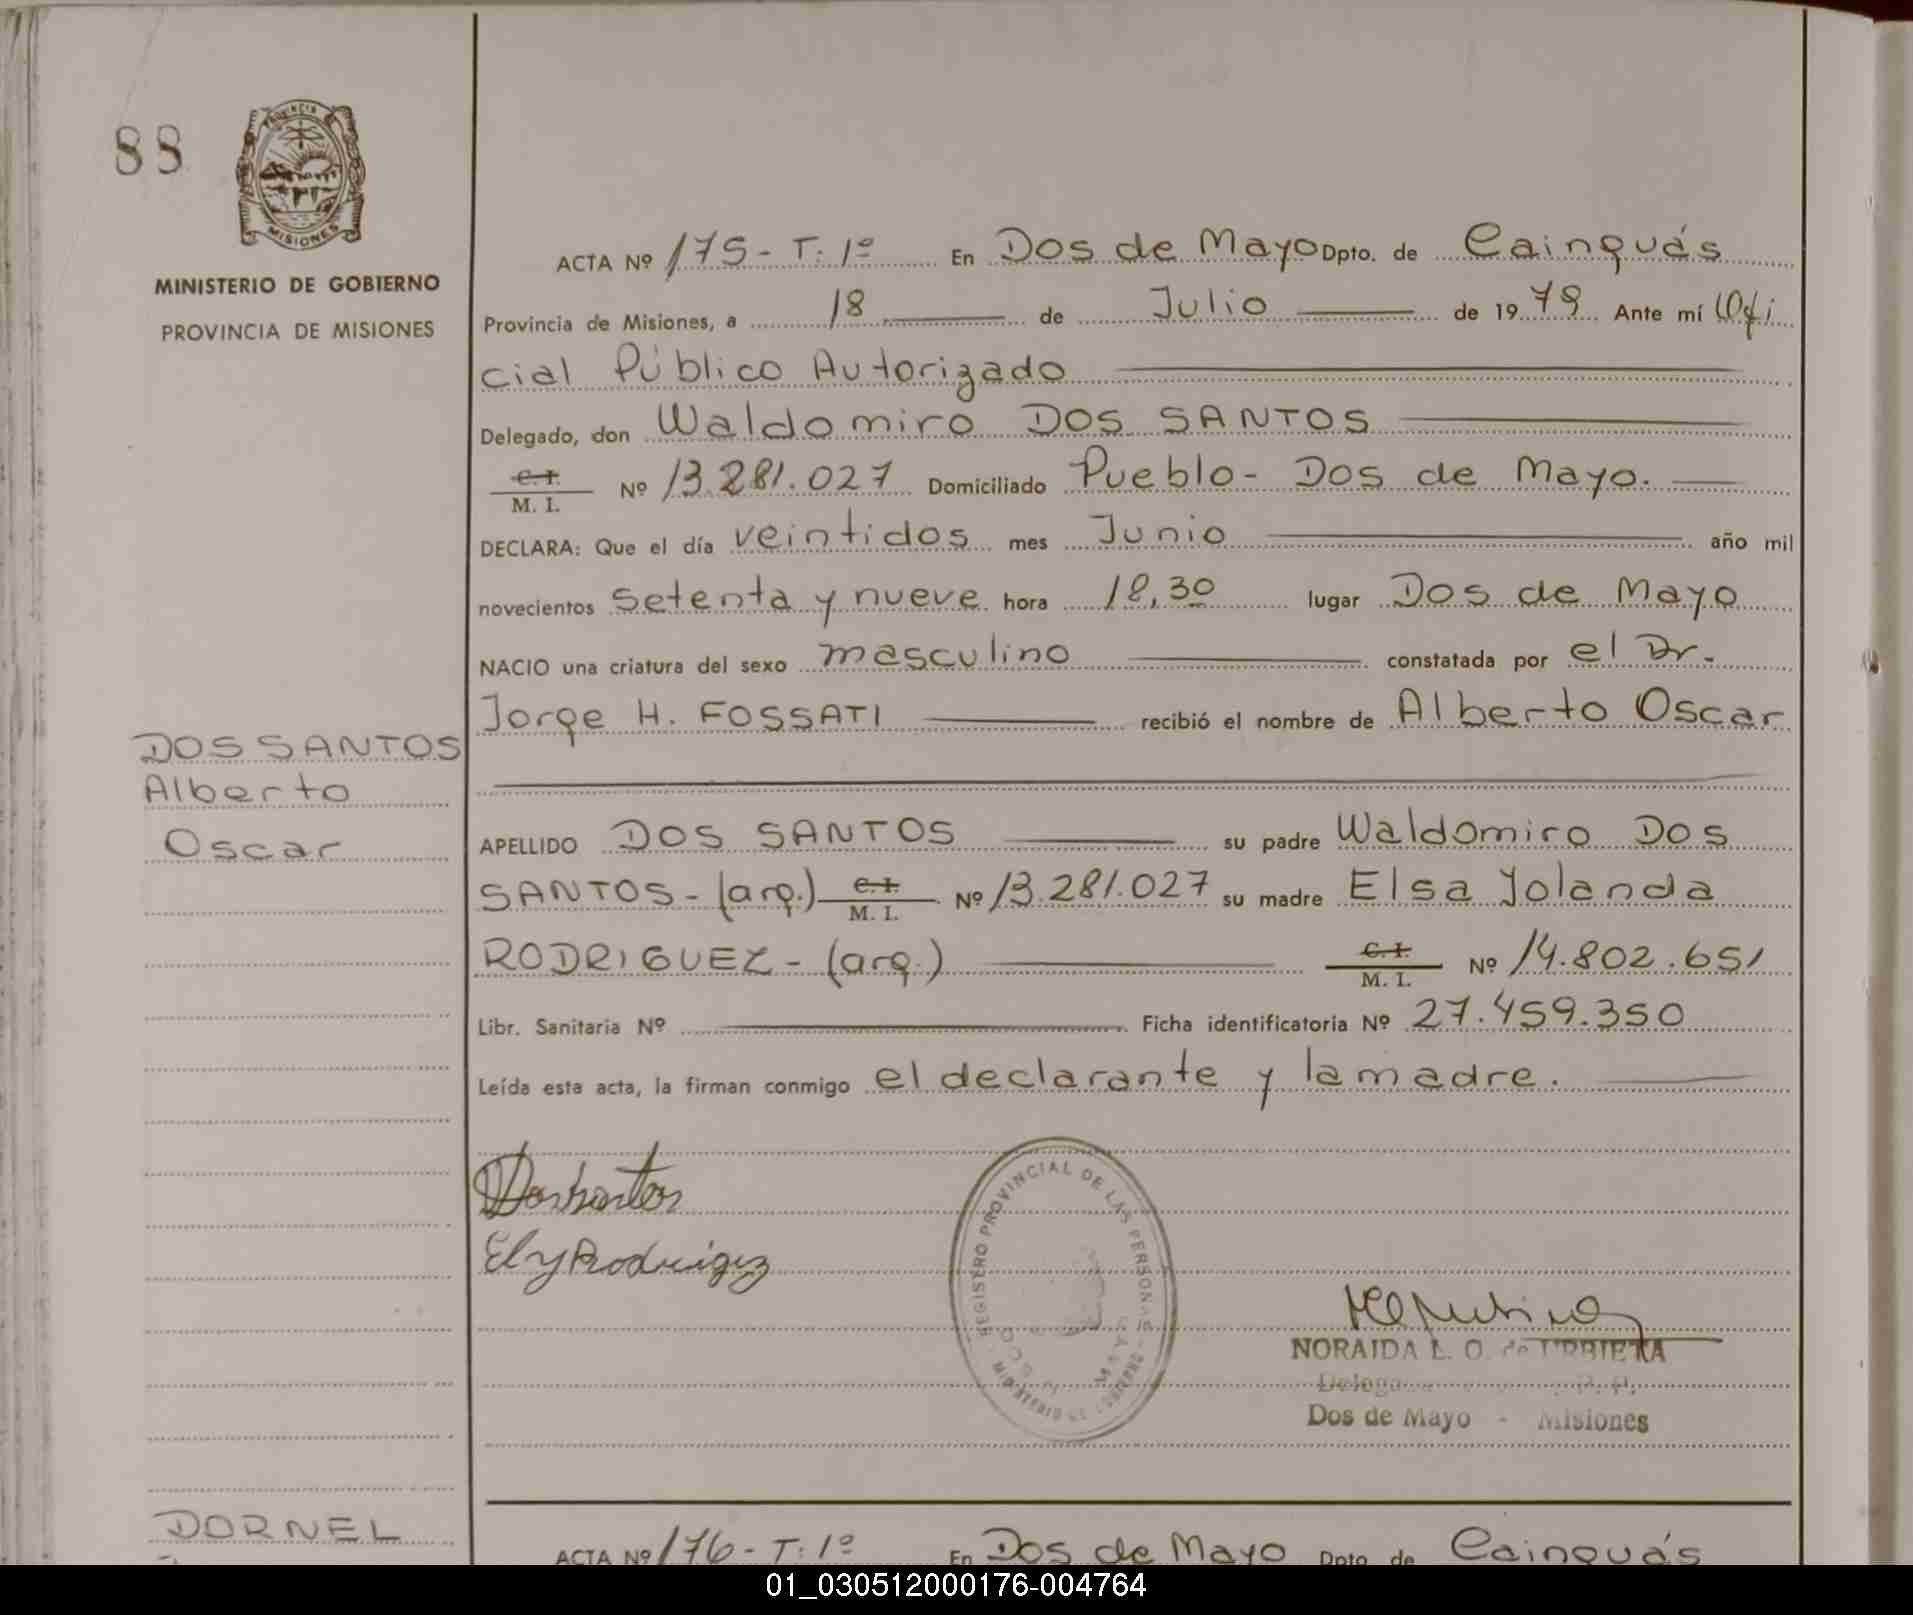 88
PROVINCIA
MISIONES
MINISTERIO DE GOBIERNO
PROVINCIA DE MISIONES
ACTA Nº 175 - T: 1º En Dos de Mayo Dpto. de Cainguás
Provincia de Misiones, a 18 de Julio de 1979 Ante mí Ofi
cial Público Autorizado
Delegado, don Waldomiro DOS SANTOS
C.I.
M. I. Nº 13.281.027 Domiciliado Pueblo - Dos de Mayo.
DECLARA: Que el día veintidos mes Junio año mil
novecientos setenta y nueve hora 18,30 lugar Dos de Mayo
NACIO una criatura del sexo masculino constatada por el Dr.
Jorge H. FOSSATI recibió el nombre de Alberto Oscar
DOS SANTOS
Alberto
Oscar
APELLIDO DOS SANTOS su padre Waldomiro DOS
SANTOS - (arg.) C.I. M. I. Nº 13.281.027 su madre Elsa Yolanda
RODRIGUEZ - (arg.) C.I. M. I. Nº 14.802.651
Libr. Sanitaria Nº Ficha identificatoria Nº 27.459.350
Leída esta acta, la firman conmigo el declarante y la madre.
Dos Santos
ElyRodriguez
REGISTRO PROVINCIAL DE LAS PERSONAS
NORAIDA L. O. de URBIETA
Dos de Mayo - Misiones
DORNEL
ACTA Nº 176 - T: 1º En Dos de Mayo Dpto de Cainguás
01_030512000176-004764